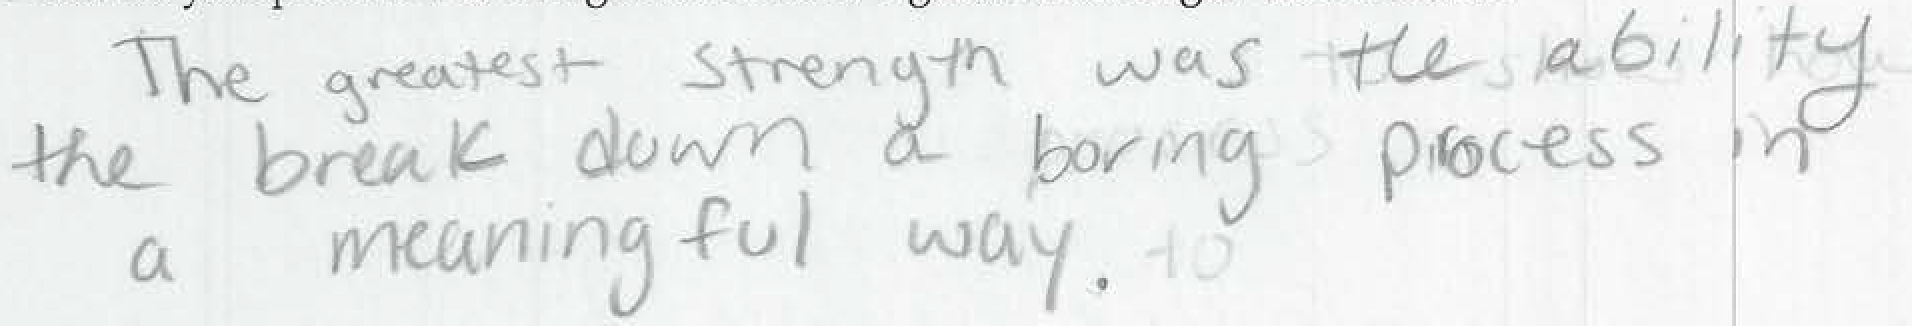 The greatest strength was the ability
the break down a boring process in
a meaningful way. to